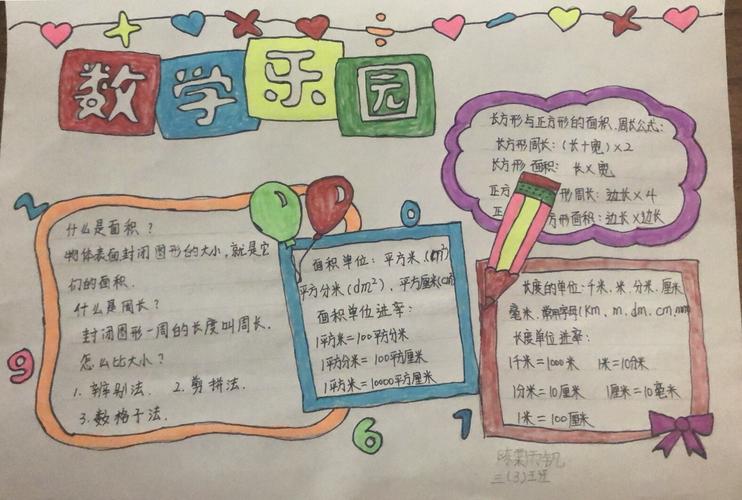 数学乐园
长方形与正方形的面积.周长公式:
长方形周长:(长+宽)×2
长方形面积: 长×宽
正 形周长: 边长×4
正 方形面积: 边长×边长
什么是面积?
物体表面封闭图形的大小,就是它
们的面积.
什么是周长?
封闭图形一周的长度叫周长.
怎么比大小?
1. 辨别法. 2. 剪拼法.
3. 数格子法.
面积单位: 平方米.(m²)
平方分米(dm²)、平方厘米(cm²)
面积单位进率:
1平方米=100平方分米
1平方分米=100平方厘米
1平方米=10000平方厘米
长度的单位:千米.米.分米.厘米
毫米. 常用字母(km、m、dm、cm、mm)
长度单位进率:
1千米=1000米 1米=10分米
1分米=10厘米 1厘米=10毫米
1米=100厘米
2
9
0
6
7
三(3)班